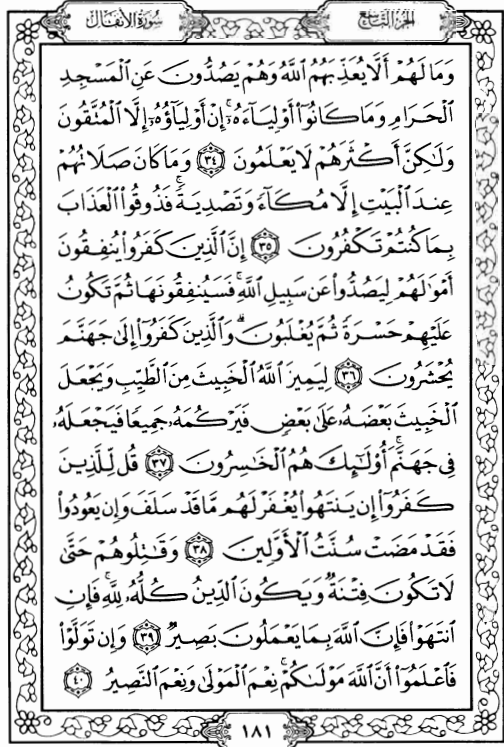 سُورَةُ الأَنفَالِ
الجُزْءُ التَّاسِعُ
وَمَا لَهُمْ أَلَّا يُعَذِّبَهُمُ اللَّهُ وَهُمْ يَصُدُّونَ عَنِ الْمَسْجِدِ
الْحَرَامِ وَمَا كَانُوٓا۟ أَوْلِيَآءَهُۥٓ ۚ إِنْ أَوْلِيَآؤُهُۥٓ إِلَّا الْمُتَّقُونَ
وَلَٰكِنَّ أَكْثَرَهُمْ لَا يَعْلَمُونَ ٣٤ وَمَا كَانَ صَلَاتُهُمْ
عِندَ الْبَيْتِ إِلَّا مُكَآءً وَتَصْدِيَةً ۚ فَذُوقُوا۟ الْعَذَابَ
بِمَا كُنتُمْ تَكْفُرُونَ ٣٥ إِنَّ الَّذِينَ كَفَرُوا۟ يُنفِقُونَ
أَمْوَٰلَهُمْ لِيَصُدُّوا۟ عَن سَبِيلِ اللَّهِ ۚ فَسَيُنفِقُونَهَا ثُمَّ تَكُونُ
عَلَيْهِمْ حَسْرَةً ثُمَّ يُغْلَبُونَ ۗ وَالَّذِينَ كَفَرُوٓا۟ إِلَىٰ جَهَنَّمَ
يُحْشَرُونَ ٣٦ لِيَمِيزَ اللَّهُ الْخَبِيثَ مِنَ الطَّيِّبِ وَيَجْعَلَ
الْخَبِيثَ بَعْضَهُۥ عَلَىٰ بَعْضٍ فَيَرْكُمَهُۥ جَمِيعًا فَيَجْعَلَهُۥ
فِى جَهَنَّمَ ۚ أُو۟لَٰٓئِكَ هُمُ الْخَٰسِرُونَ ٣٧ قُل لِّلَّذِينَ
كَفَرُوٓا۟ إِن يَنتَهُوا۟ يُغْفَرْ لَهُم مَّا قَدْ سَلَفَ وَإِن يَعُودُوا۟
فَقَدْ مَضَتْ سُنَّتُ الْأَوَّلِينَ ٣٨ وَقَٰتِلُوهُمْ حَتَّىٰ
لَا تَكُونَ فِتْنَةٌ وَيَكُونَ الدِّينُ كُلُّهُۥ لِلَّهِ ۚ فَإِنِ
انتَهَوْا۟ فَإِنَّ اللَّهَ بِمَا يَعْمَلُونَ بَصِيرٌ ٣٩ وَإِن تَوَلَّوْا۟
فَاعْلَمُوٓا۟ أَنَّ اللَّهَ مَوْلَىٰكُمْ ۚ نِعْمَ الْمَوْلَىٰ وَنِعْمَ النَّصِيرُ ٤٠
١٨١